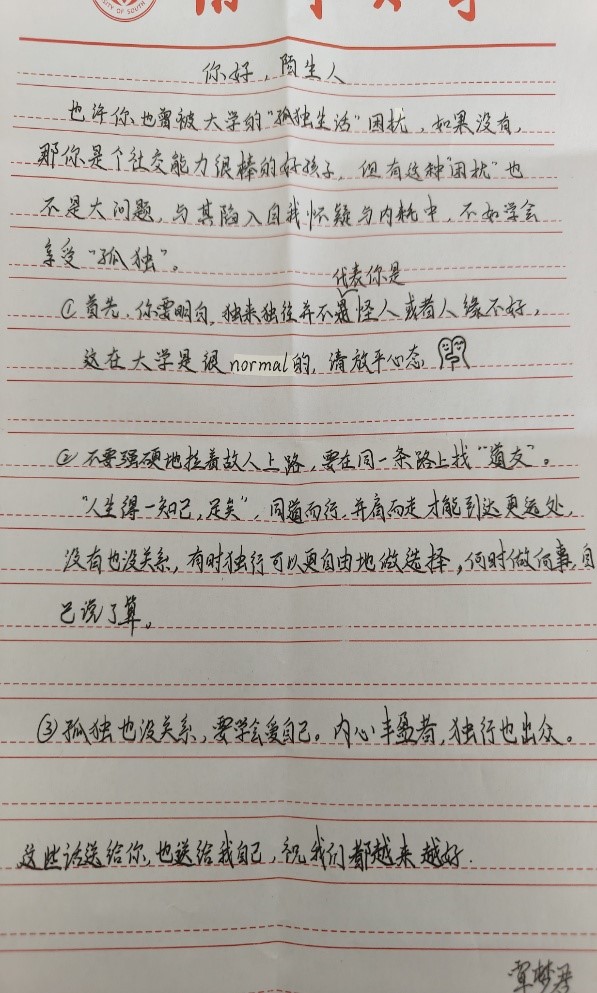 UNIVERSITY OF SOUTH
你好，陌生人
也许你也曾被大学的“孤独生活”困扰，如果没有，
那你是个社交能力很棒的好孩子，但有这种“困扰”也
不是大问题，与其陷入自我怀疑与内耗中，不如学会
享受“孤独”。
代表你是
①首先，你要明白，独来独往并不是怪人或者人缘不好，
这在大学是很normal的，请放平心态
②不要强硬地拉着故人上路，要在同一条路上找“道友”。
“人生得一知己，足矣”，同道而行，并肩而走才能到达更远处，
没有也没关系，有时独行可以更自由地做选择，何时做何事，自
己说了算。
③孤独也没关系，要学会爱自己。内心丰盈者，独行也出众。
这些话送给你，也送给我自己，祝我们都越来越好.